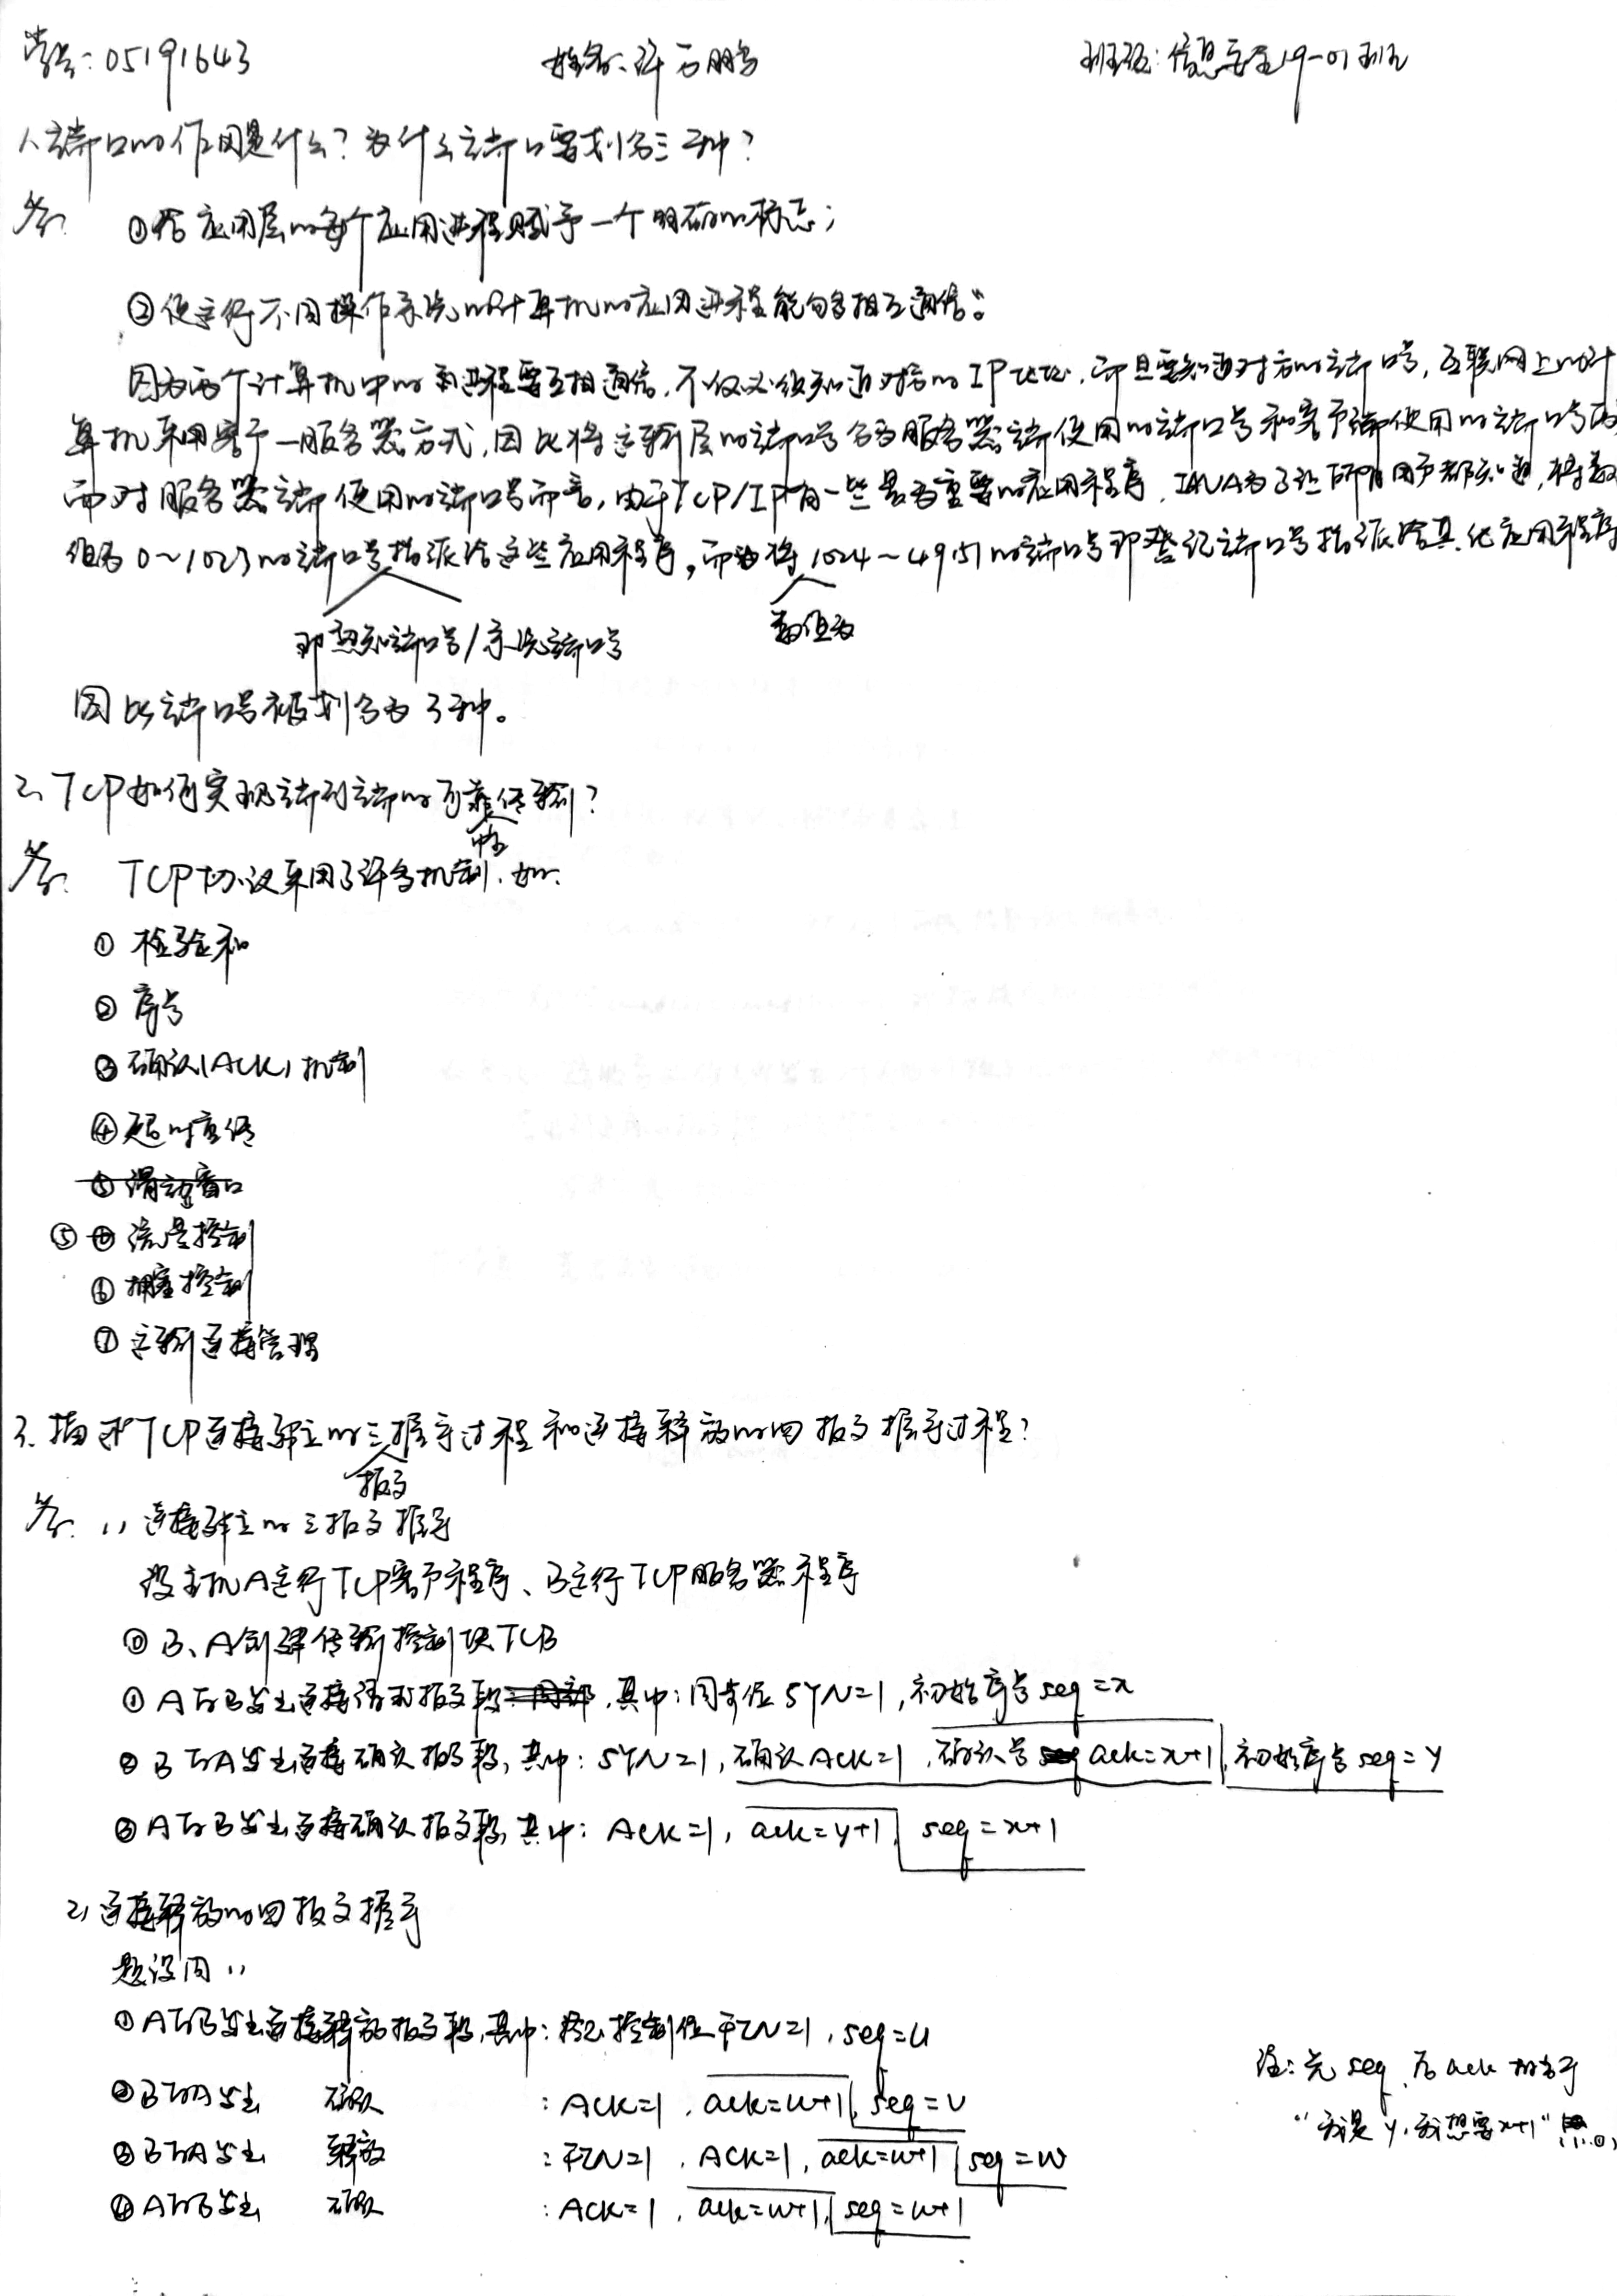 学号:05191643 姓名:许万鹏 班级:信息安全19-01班
1、端口的作用是什么?为什么端口要划分三种?
答: ①给应用层的每个应用进程赋予一个明确的标志;
②使运行不同操作系统的计算机的应用进程能够相互通信。
因为两个计算机中的进程要互相通信,不仅必须知道对方的IP地址,而且要知道对方的端口号,互联网上的计
算机采用客户-服务器方式,因此将运输层的端口号分为服务器端使用的端口号和客户端使用的端口号两
而对服务器端使用的端口号而言,由于TCP/IP有一些最为重要的应用程序,IANA为了让所有用户都知道,将数
值为0~1023的端口号指派给这些应用程序,而将1024~49151的端口号即登记端口号指派给其他应用程序
即熟知端口号/系统端口号 数值为
因此端口号被划分为3种。
2、TCP如何实现端到端的可靠传输?
答: TCP协议采用了许多机制,如:
① 检验和
② 序号
③ 确认(ACK)机制
④ 超时重传
⑤ 滑动窗口
⑤ 流量控制
⑥ 拥塞控制
⑦ 运输连接管理
3、描述TCP连接建立的三握手过程和连接释放的四报文握手过程?
报文
答: 1) 连接建立的三报文握手
设主机A运行TCP客户程序、B运行TCP服务器程序
⓪ B、A创建传输控制块TCB
① A向B发出连接请求报文段,其中:同步位SYN=1,初始序号seq=x
② B向A发出连接确认报文段,其中:SYN=1,确认ACK=1,确认号ack=x+1,初始序号seq=y
③ A向B发出连接确认报文段,其中:ACK=1,ack=y+1,seq=x+1
2) 连接释放的四报文握手
题设同1)
① A向B发出连接释放报文段,其中:终止控制位FIN=1,seq=u
② B向A发出 确认 :ACK=1,ack=u+1,seq=v
③ B向A发出 释放 :FIN=1,ACK=1,ack=u+1,seq=w
④ A向B发出 确认 :ACK=1,ack=w+1,seq=u+1
注:先seq,后ack 相当于
“我是y,我想要x+1”